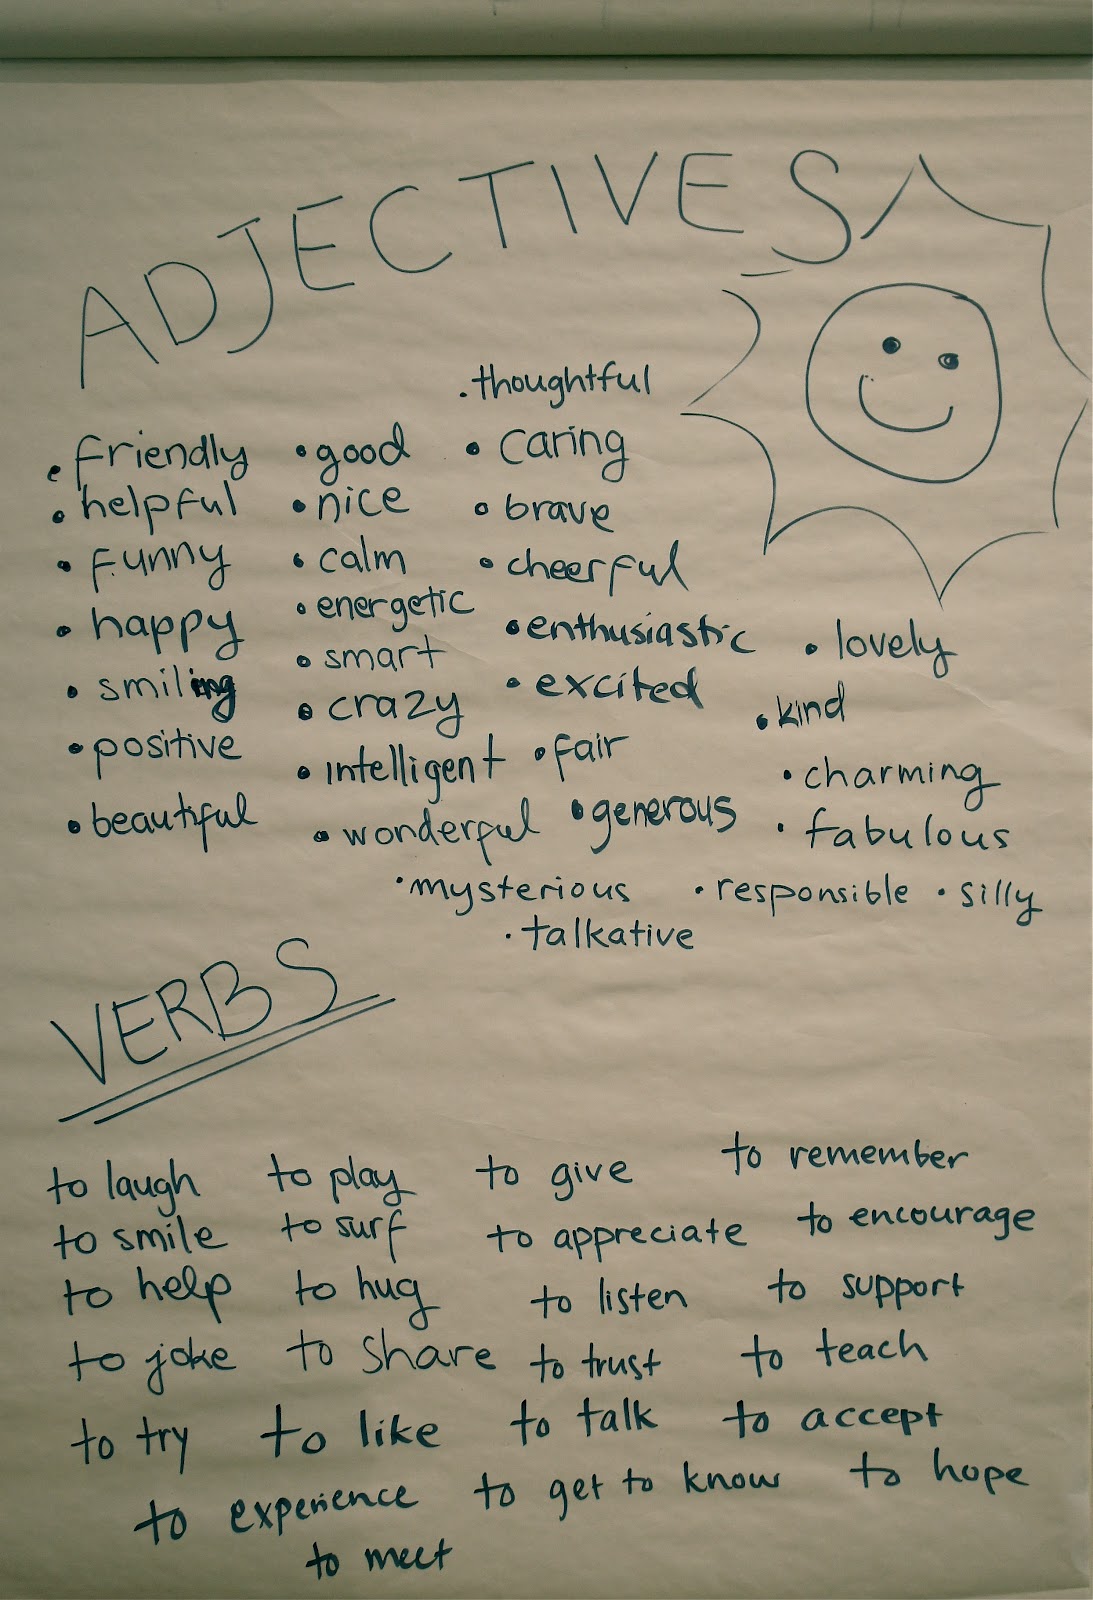 ADJECTIVES
• thoughtful
• friendly • good • caring
• helpful • nice • brave
• funny • calm • cheerful
• happy • energetic • enthusiastic • lovely
• smiling • smart • excited • kind
• positive • crazy • fair • charming
• beautiful • intelligent • generous • fabulous
• wonderful
• mysterious • responsible • silly
• talkative
VERBS
to laugh to play to give to remember
to smile to surf to appreciate to encourage
to help to hug to listen to support
to joke to share to trust to teach
to try to like to talk to accept
to experience to get to know to hope
to meet